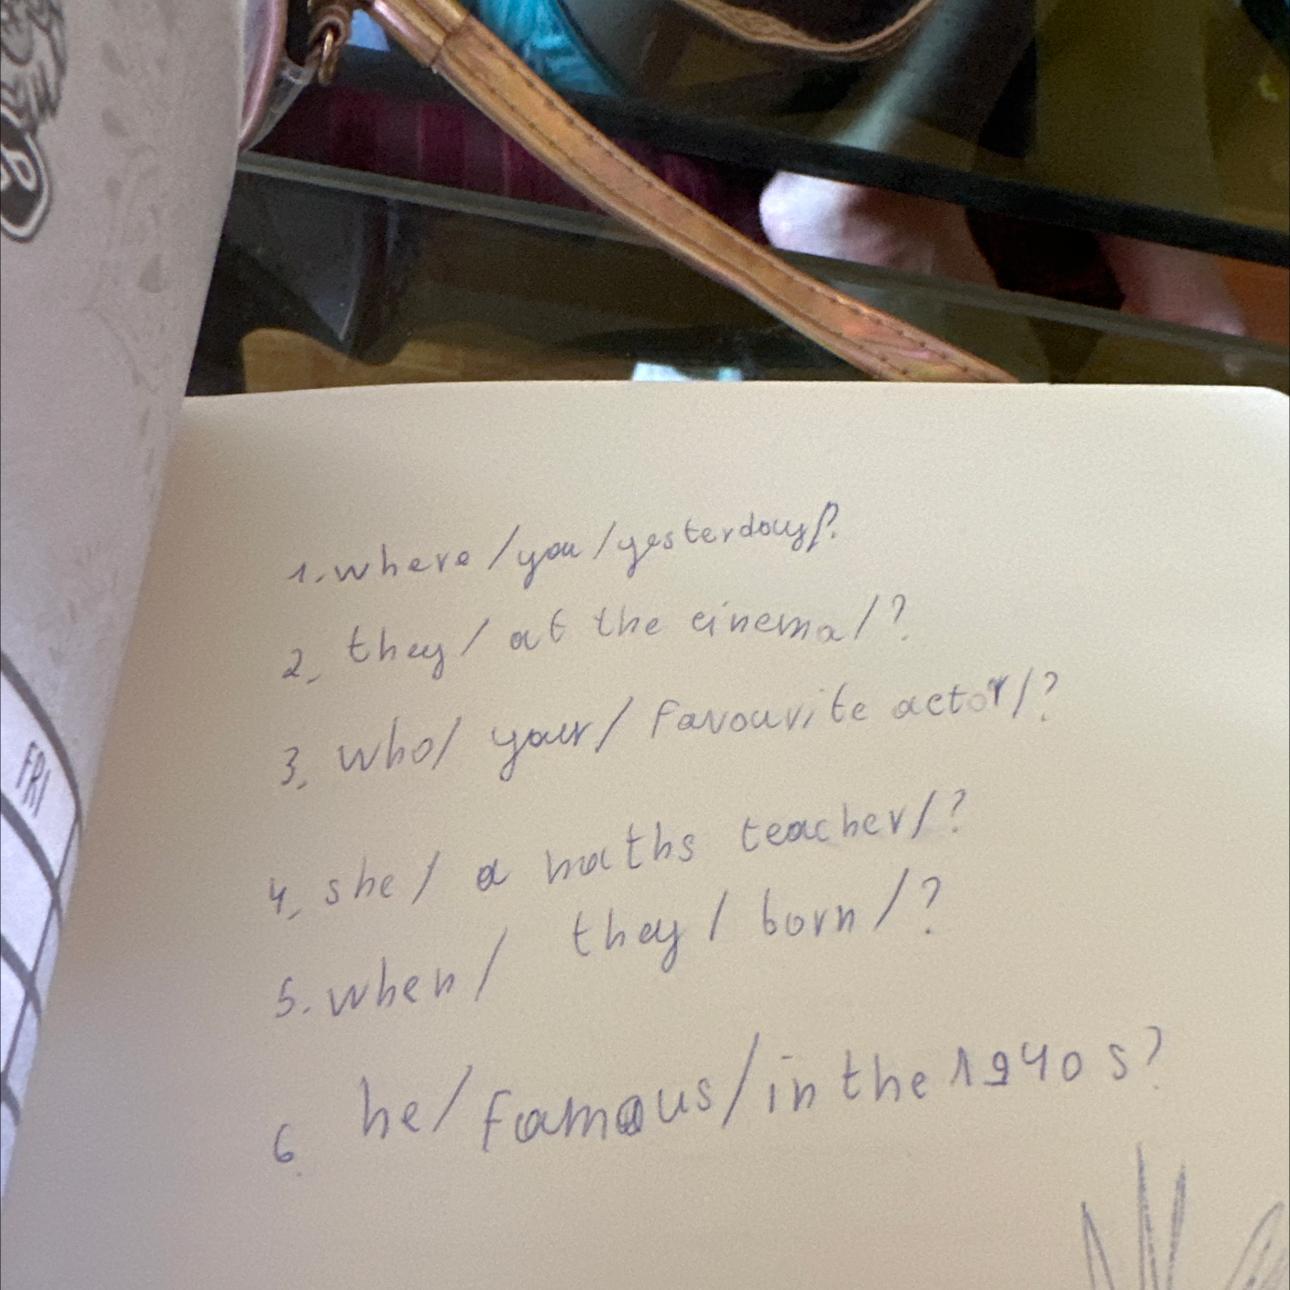 FRI
1. where/you/yesterday/?
2, they/ at the cinema/?
3, who/ your/ favourite actor/?
4, she/ a maths teacher/?
5. when/ they/ born/?
6 he/famous/in the 1940s?